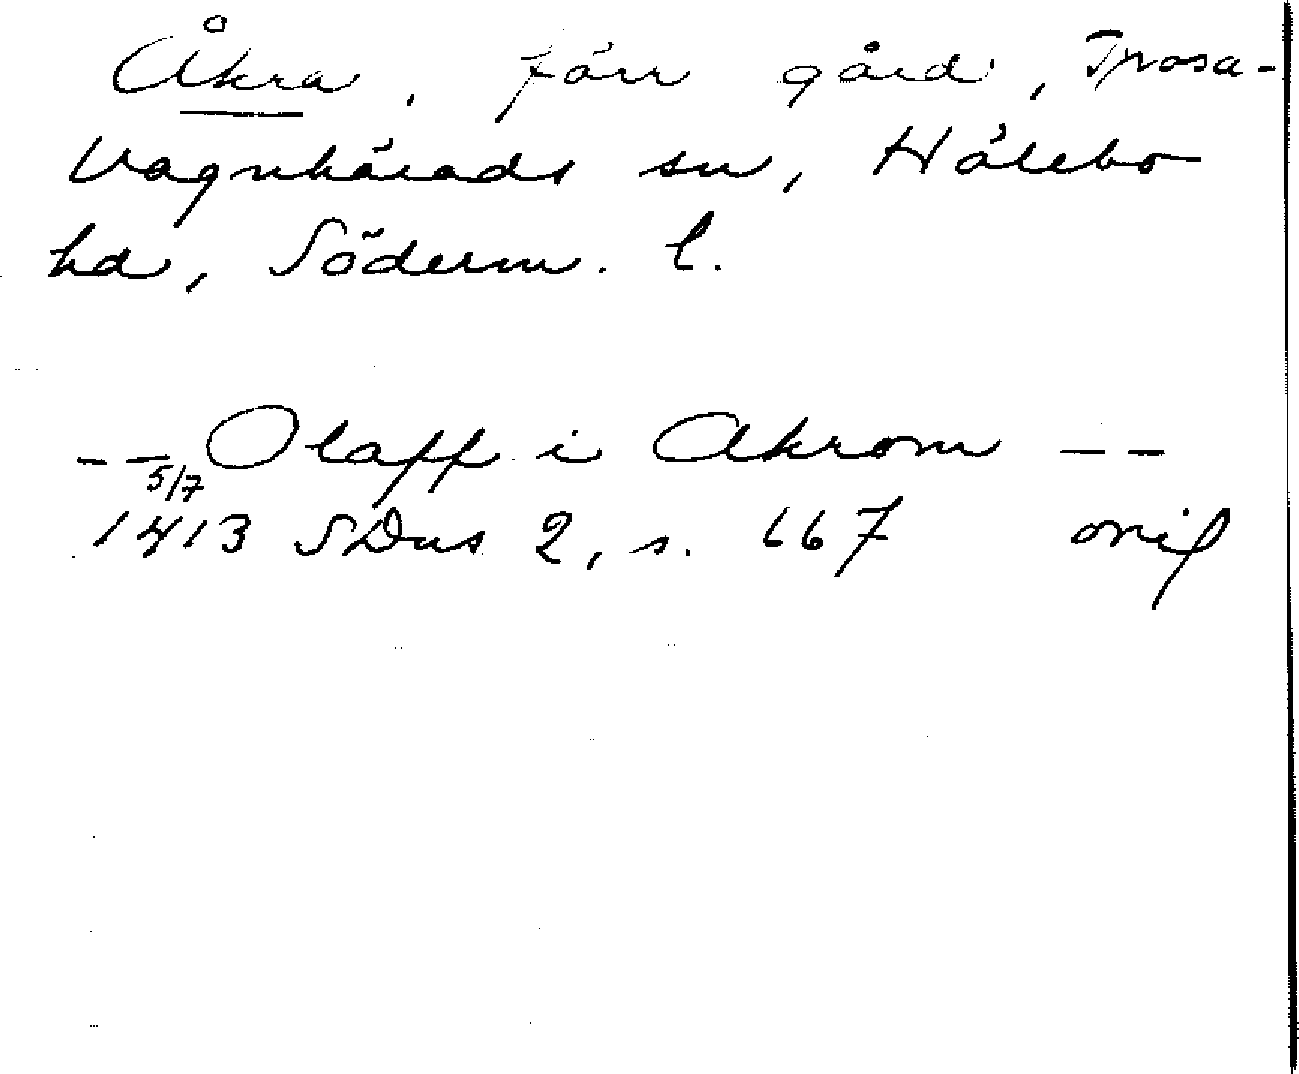 Åkra, förr gård, Trosa-
Vagnhärads sn, Hölebo
hd, Söderm. l.
-- Olaff i Akrom --
5/7
1413 SDns 2, s. 667 orig